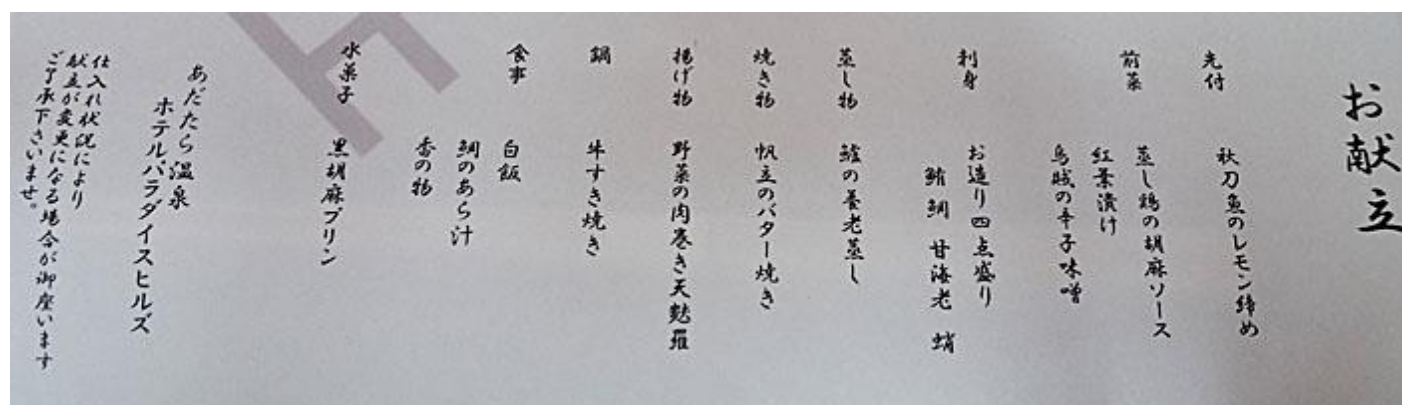 お献立
先付
秋刀魚のレモン締め
前菜
蒸し鶏の胡麻ソース
紅葉漬け
烏賊の辛子味噌
刺身
お造り四点盛り
鮪 鯛 甘海老 蛸
蒸し物
鱸の養老蒸し
焼き物
帆立のバター焼き
揚げ物
野菜の肉巻き天麩羅
鍋
牛すき焼き
食事
白飯
鯛のあら汁
香の物
水菓子
黒胡麻プリン
あだたら温泉
ホテルパラダイスヒルズ
仕入れ状況により
献立が変更になる場合が御座います
ご了承下さいませ。